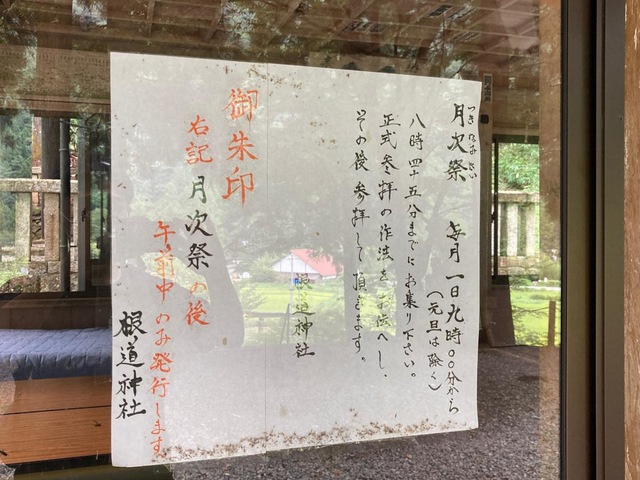 月次祭 毎月一日九時〇〇分から
つきなみさい
(元旦は除く)
八時四十五分までにお集り下さい。
正式参拝の作法をお伝へし、
その後参拝して頂きます。
根道神社
御朱印
右記月次祭の後
午前中のみ発行します
根道神社